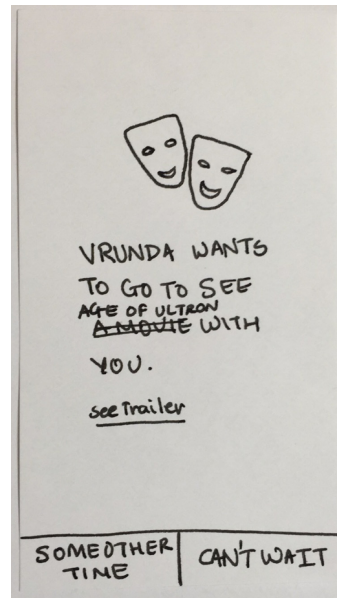 VRUNDA WANTS
TO GO TO SEE
AGE OF ULTRON
A MOVIE WITH
YOU.
see Trailer
SOMEOTHER
TIME
CAN'T WAIT